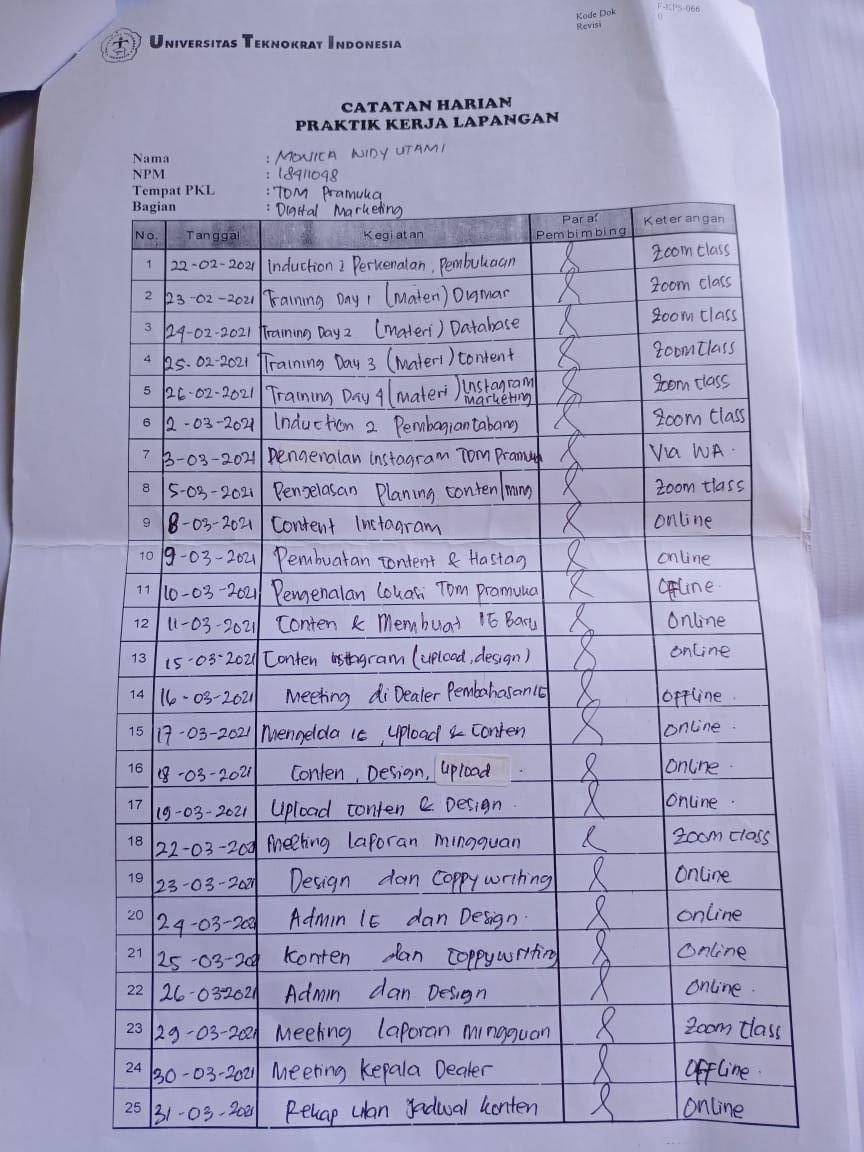 Kode Dok F-KPS-066
Revisi 0
UNIVERSITAS TEKNOKRAT INDONESIA
CATATAN HARIAN
PRAKTIK KERJA LAPANGAN
Nama : MONICA WIDY UTAMI
NPM : 18411098
Tempat PKL : TDM Pramuka
Bagian : Digital Marketing
No. Tanggal Kegiatan Paraf Pembimbing Keterangan
1 22-02-2021 Induction 1 Perkenalan, Pembukaan Zoom Class
2 23-02-2021 Training Day 1 (Materi) Digmar Zoom Class
3 24-02-2021 Training Day 2 (materi) Database Zoom Class
4 25-02-2021 Training Day 3 (Materi) Content Zoom Class
5 26-02-2021 Training Day 4 (materi) Instagram marketing Zoom Class
6 2-03-2021 Induction 2 Pembagian Cabang Zoom Class
7 3-03-2021 Pengenalan instagram TDM Pramuka Via WA.
8 5-03-2021 Penjelasan Planing Conten Zoom Class
9 8-03-2021 Content Instagram Online
10 9-03-2021 Pembuatan Content & Hastag Online
11 10-03-2021 Pengenalan Lokasi TDM Pramuka Offline.
12 11-03-2021 Conten & Membuat IG Baru Online
13 15-03-2021 Conten instagram (upload, design) Online
14 16-03-2021 Meeting di Dealer Pembahasan IG Offline.
15 17-03-2021 Mengelola IG, Upload & Conten Online.
16 18-03-2021 Conten, Design, Upload. Online.
17 19-03-2021 Upload Conten & Design. Online.
18 22-03-202 Meeting laporan mingguan Zoom Class
19 23-03-2021 Design dan Coppywriting Online
20 24-03-202 Admin IG dan Design. Online
21 25-03-202 Konten dan Coppywriting Online
22 26-032021 Admin dan Design Online.
23 29-03-2021 Meeting laporan mingguan Zoom Class
24 30-03-2021 Meeting Kepala Dealer Offline.
25 31-03-2021 Rekap Jadwal Konten Online